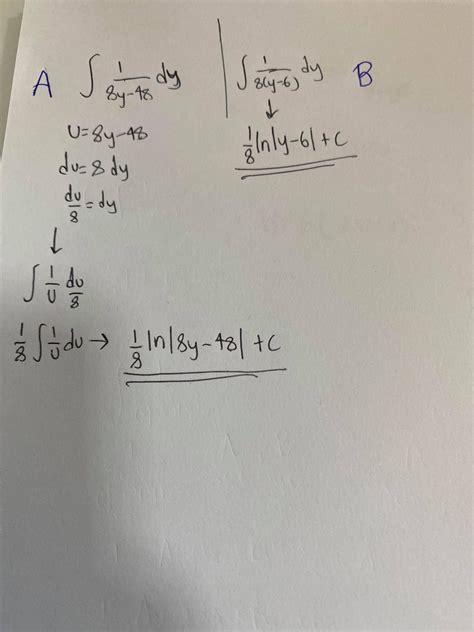 A ∫ 1/(8y-48) dy
U=8y-48
du=8 dy
du/8 = dy
↓
∫ 1/U du/8
1/8 ∫ 1/U du → 1/8 ln|8y-48| + C
∫ 1/(8(y-6)) dy B
↓
1/8 ln|y-6| + C